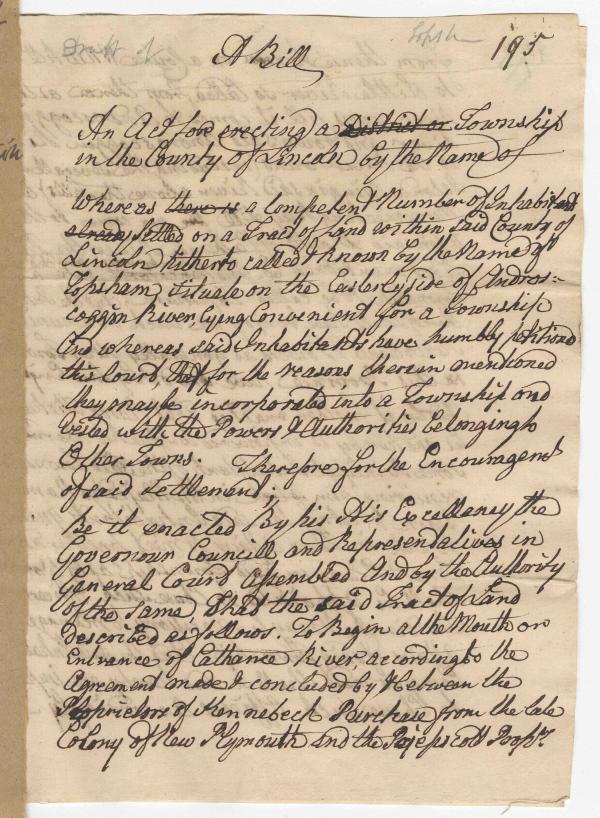 Draft of
Topsham
195
A Bill
An Act for erecting a District or Township
in the County of Lincoln by the Name of
Whereas there is a Competent Number of Inhabitants
already settled on a Tract of land within said County of
Lincoln hitherto called & known by the Name of
Topsham, situate on the Easterly side of Andros=
coggin River, lying Convenient for a Township
And whereas said Inhabitants have humbly petitiond
this Court, that for the reasons therein mentioned
they may be incorporated into a Township and
Vested with the Powers & Authorities belonging to
Other Towns. Therefore for the Encouragemt
of said Settlement;
Be it enacted By his His Excellency the
Governour Councill and Representatives in
General Court assembled And by the Authority
of the same, That the said Tract of Land
described as follows. To Begin at the Mouth or
Entrance of Cathance River, according to the
Agreement made & concluded by & between the
Proprietors of Kennebeck Purchase from the late
Colony of New Plymouth and the Pejepscott Proprs.